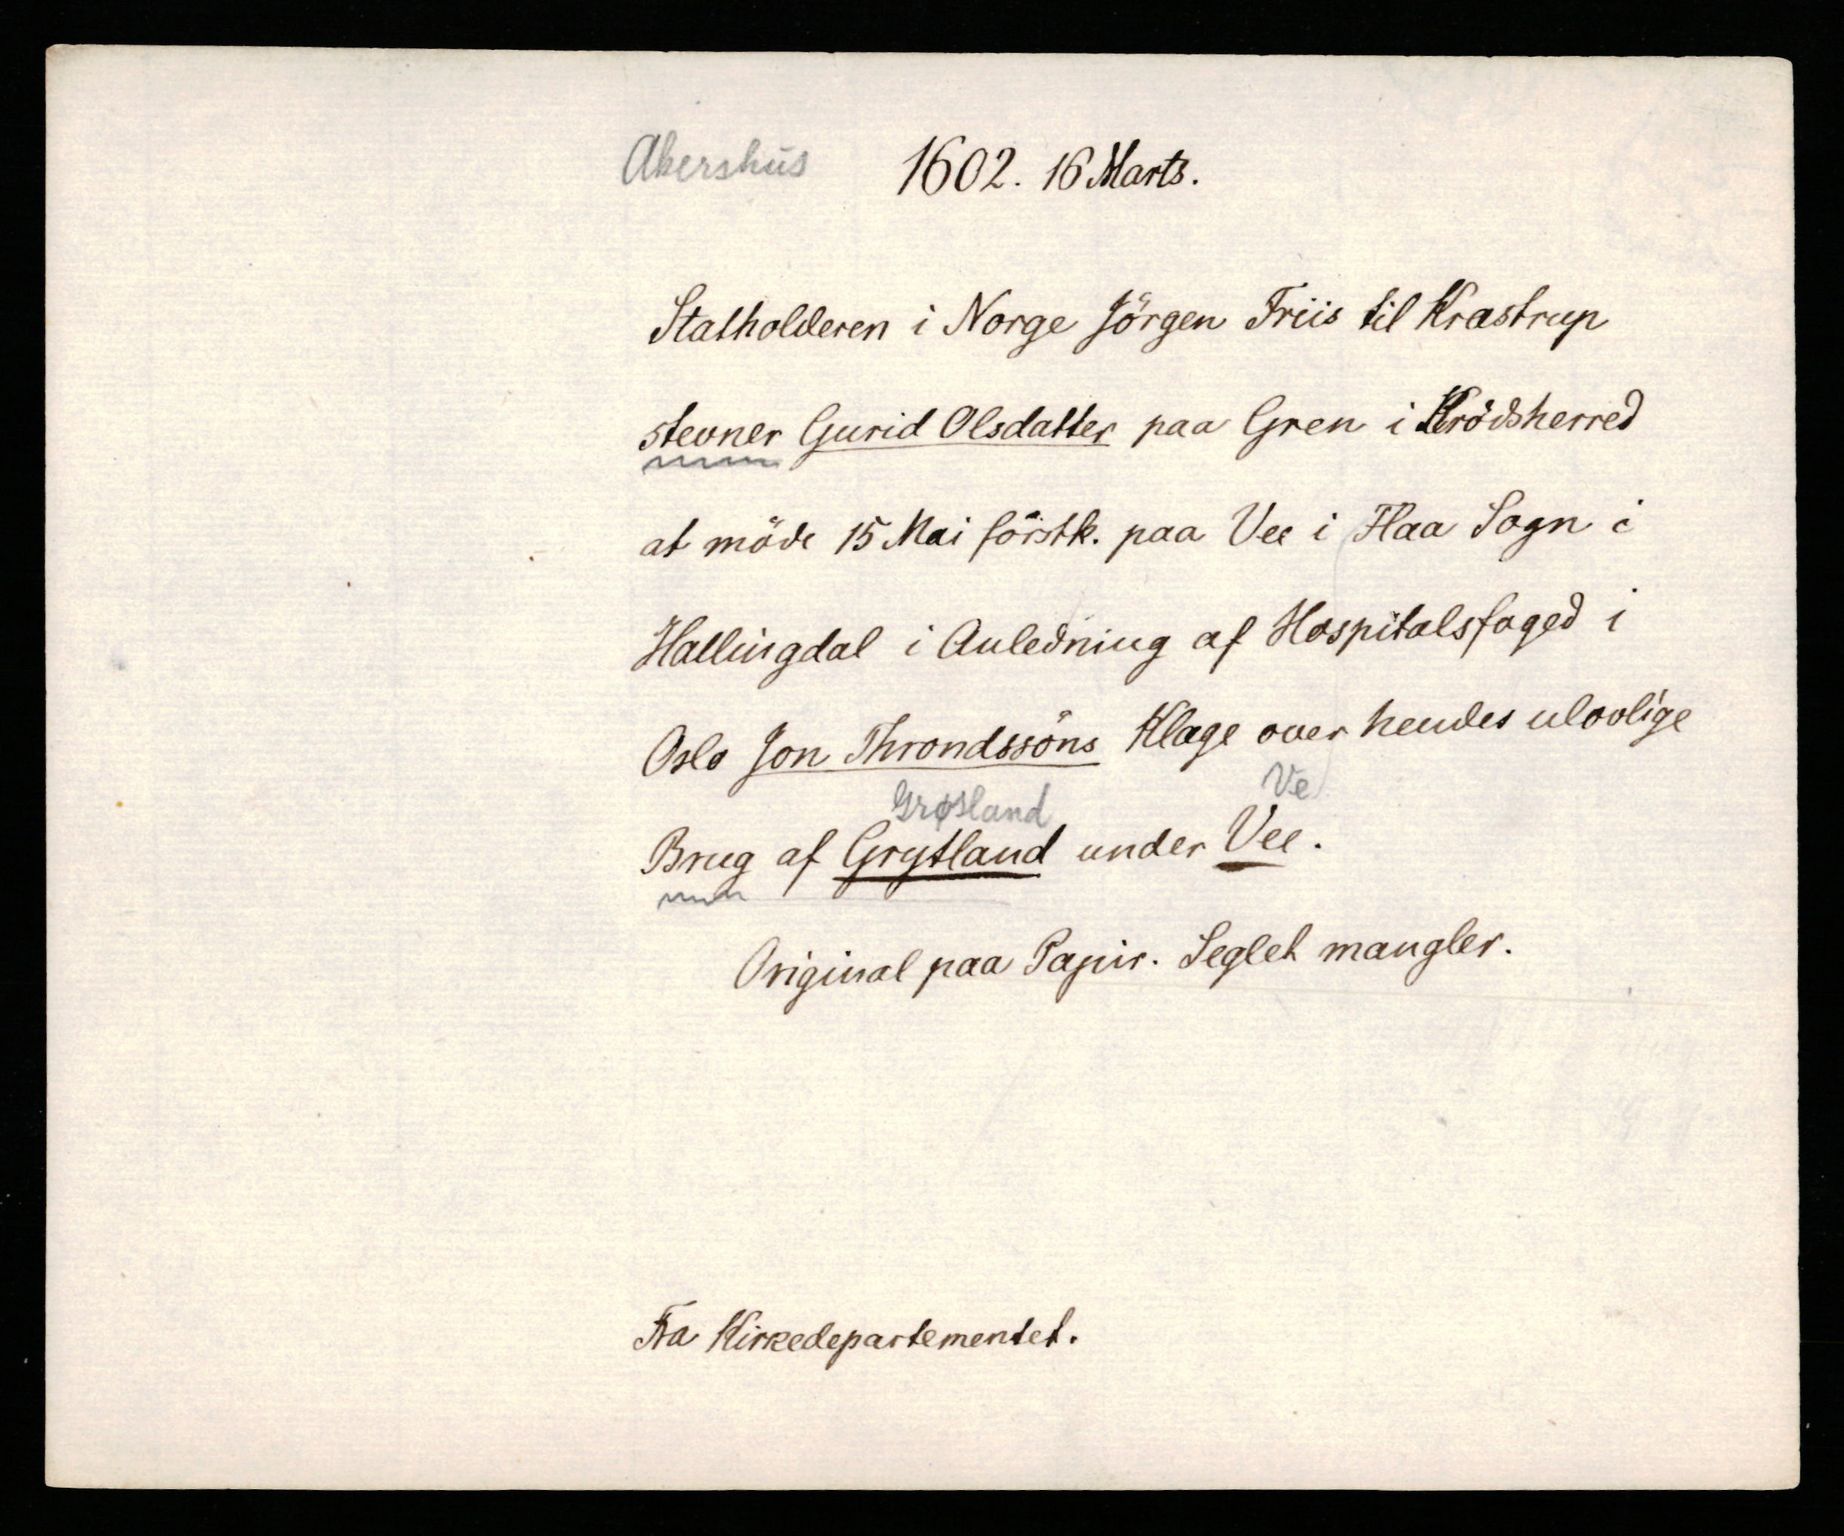 Akershus 1602. 16 Marts.
Statholderen i Norge Jörgen Friis til Krastrup
stevner Gurid Olsdatter paa Gren i Krödsherred
at möde 15 Mai förstk. paa Vee i Flaa Sogn i
Hallingdal i Anledning af Hospitalsfoged i
Oslo Jon Throndssöns Klage over hendes ulovlige
Grøsland Ve
Brug af Grytland under Vee.
Original paa Papir. Seglet mangler.
Fra Kirkedepartementet.